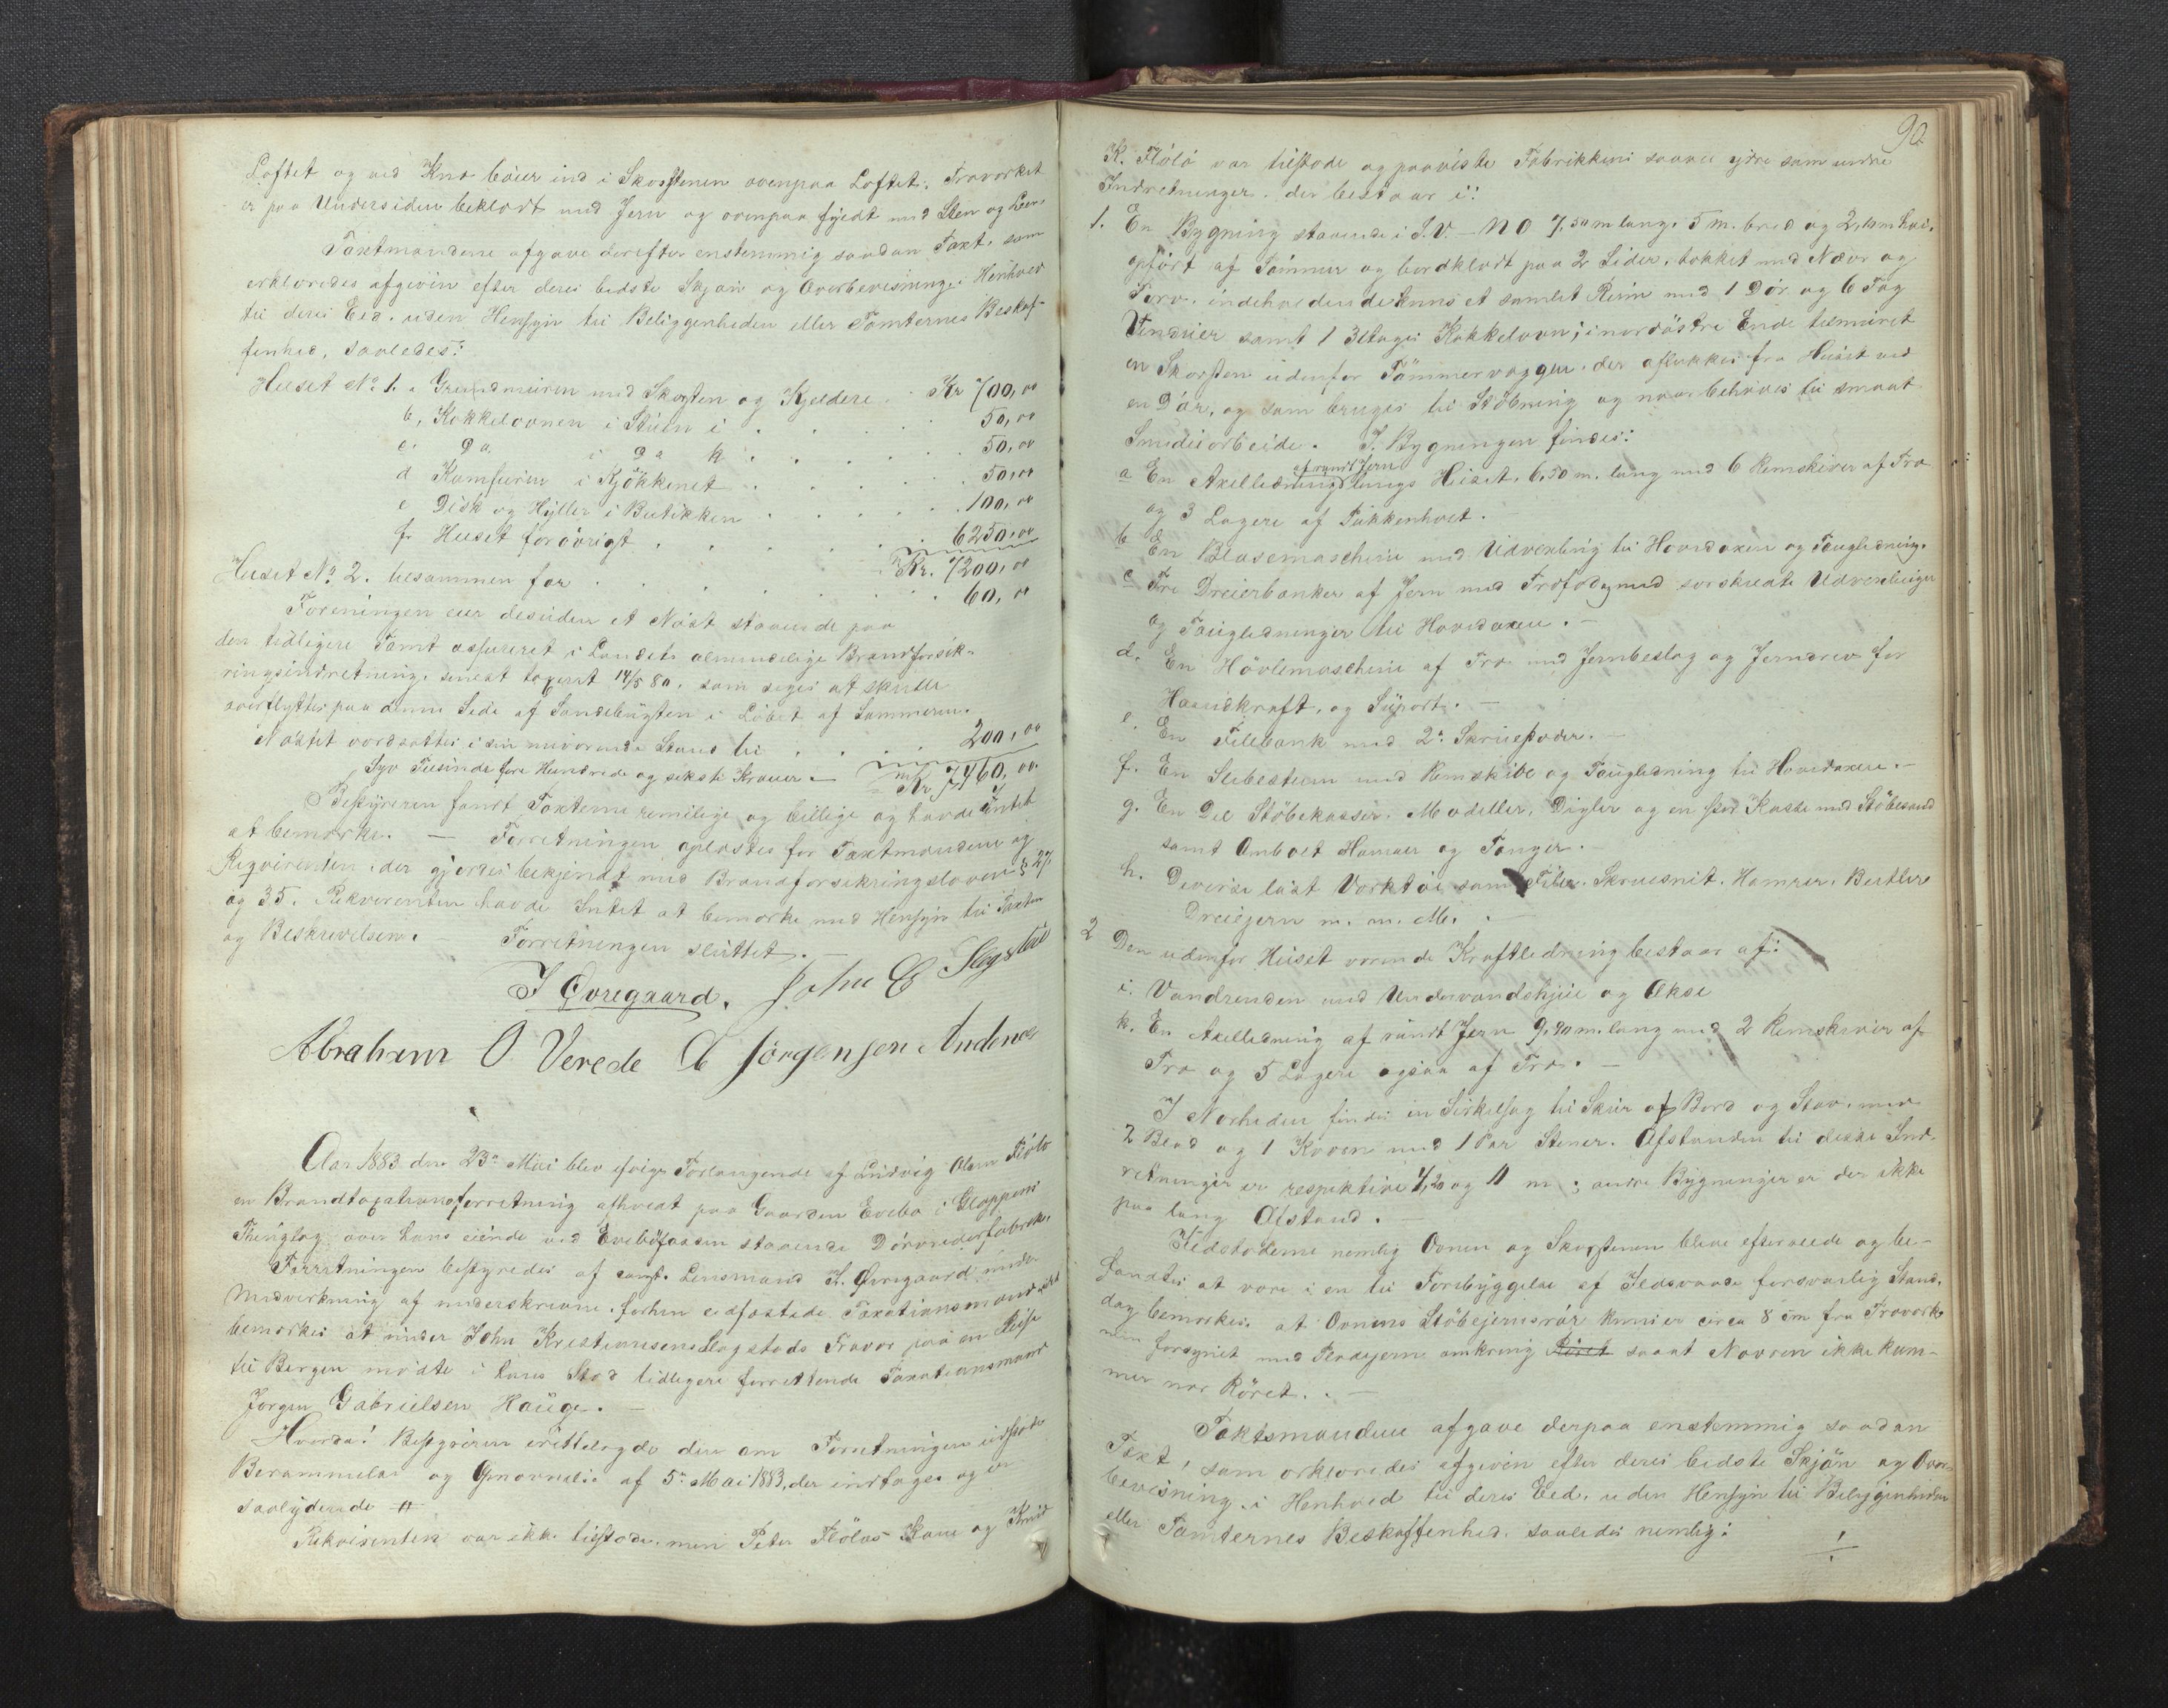 Loftet og ved Knæ böier ind i Skorstenen ovenpaa Loftet. Træværket
er paa Undersiden beklædt med Jern og ovenpaa fyldt med Sten og Leer.
Taxtmændene afgave derefter enstemmig saadan Taxt, som
erklæredes afgiven efter deres bedste Skjøn og Overbevisning i Henhold
til deres Eed, uden Hensyn til Beliggenheden eller Tomternes Beskaf-
fenhed, saaledes:
Huset No 1. a Grundmuren med Skorsten og Kjeldere . . Kr 700,00
b, Kokkelovnen i Stuen i . . . . . 50,00
c. Do. i Do k . . . . . 50,00
d Komfuren i Kjökkenet . . . . . 50,00
e Disk og Hyller i Butikken . . . . . 100,00
f. Huset forövrigt . . . . . 6250,00
Kr. 7200,00
Huset No 2. tilsammen for . . . . . 60,00
Foreningen eier desuden et Nøst staaende paa
den tidligere Tomt assureret i Landets almindelige Brandforsik-
ringsindretning, senest taxeret 14/5 80. som siges at skulle
overflyttes paa denne Side af Sandebugten i Löbet af Sommeren.
Nøstet værdsættes i sin nuværende Stand til . . . . 200,00
Syv Tusinde fire Hundrede og seksti Kroner.— Kr 7460,00
Bestyreren fandt Taxterne rimelige og billige og havde Intet
at bemærke. — Forretningen oplæstes for Taxtmændene og
Reqvirenten, der gjordes bekjendt med Brandforsikringsloven § 27
og 35. Rekvirenten havde Intet at bemærke med Hensyn til Taxten
og Beskrivelsen. — Forretningen sluttet.—
J Øvregaard. John C Slagstad
Abraham O Verede A Jörgensen Andenæs
Aar 1883 den 23de Mai blev ifølge Forlangende af Ludvig Olsen Flölo
en Brandtaxationsforretning afholdt paa Gaarden Evebø i Gloppens
Thinglag over hans eiende ved Evebøfossen staaende Dörvriderfabrik.
Forretningen bestyredes af const. Lensmand J. Øvregaard under
Medvirkning af underskrevne, forhen eedfæstede Taxationsmænd, idet
bemærkes at under John Kristiansen Slagstads Fravær paa en Reise
til Bergen mødte i hans Sted tidligere forrettende Taxationsmand
Jørgen Gabrielsen Hauge. —
Hvorda! Bestyreren fremlagde den om Forretningen udstedte
Berammelse og Opnævnelse af 5te Mai 1883, der indtages og er
saalydende #
Rekvirenten var ikke tilstede, men Peter Flölos Kone og
90.
K. Flölo var tilstede og paaviste Fabrikkens saavel ydre som indre
Indretninger, der bestaar i:
1. En Bygning staaende i S.V. – N O 7,50 m lang, 5 m. bred og 2,10 m höi,
opfört af Tömmer og bordklædt paa 2 Sider, tækket med Næver og
Torv, indeholdende kuns et samlet Rum med 1 Dör og 6 Fag
Vinduer samt 1 3 Etages Kakkelovn; i nordöstre Ende tilmuret
en Skorsten udenfor Tömmervæggen, der aflukkes fra Huset ved
en Dör, og som bruges til Stöbning og naar behöves til smaat
Smediearbeide. I Bygningen findes:
af rundt Jern
a En Axelledning langs Huset, 6,50 m. lang med 6 Remskiver af Træ
og 3 Lagere af Pukkenholt. —
b En Blæsemaschine med Udvexling til Hovedaxen og Tougledning.
c Tre Dreierbænker af Jern med Træfod og med særskildte Udvexlinger
og Tougledninger til Hovedaxen. —
d. En Hövlemaschine af Træ med Jernbeslag og Jerndrev for
Haandkraft, og Suport. —
e. En Filebænk med 2de Skruestæder. —
f. En Slibesteen med Remskive og Tougledning til Hovedaxen. —
g. En Del Stöbekasser, Modeller, Digler og en stor Kasse med Stöbesand
samt Ambolt Hamrer og Tænger. —
h. Diverse löst Værktöi, som Filer, Skruesnit, Hamrer, Beitler
Dreiejern m. m. M. . —
2 Den udenfor Huset værende Kraftledning bestaar af:
i. Vandrenden med Undervandshjul og Økse
k. En Axelledning af rundt Jern 9,90 m. lang med 2 Remskiver af
Træ og 5 Lagere ogsaa af Træ. —
I Nærheden findes en Sirkelsag til Skur af Bord og Stav, med
2 Blad og 1 Kværn med 1 Par Stener. Afstanden til disse Ind-
retninger er respektive 4,20 og 11 m; andre Bygninger er der ikke
paa lang Afstand. —
Ildstederne nemlig Ovnen og Skorstenen bleve efterseede og be-
fandtes at være i en til Forebyggelse af Ildsvaade forsvarlig Stand,
dog bemærkes, at Ovnens Stöbejernsrör kuns er circa 8 cm fra Træværk
men forsynet med Pladejern omkring Röret saa at Næveren ikke kom-
mer nær Röret. . —
Taktsmændene afgave derpaa enstemmig saadan
Taxt, som erklæredes afgiven efter deres bedste Skjön og Over-
bevisning, i Henhold til deres Eed, uden Hensyn til Beliggenheden
eller Tomternes Beskaffenhed, saaledes nemlig: